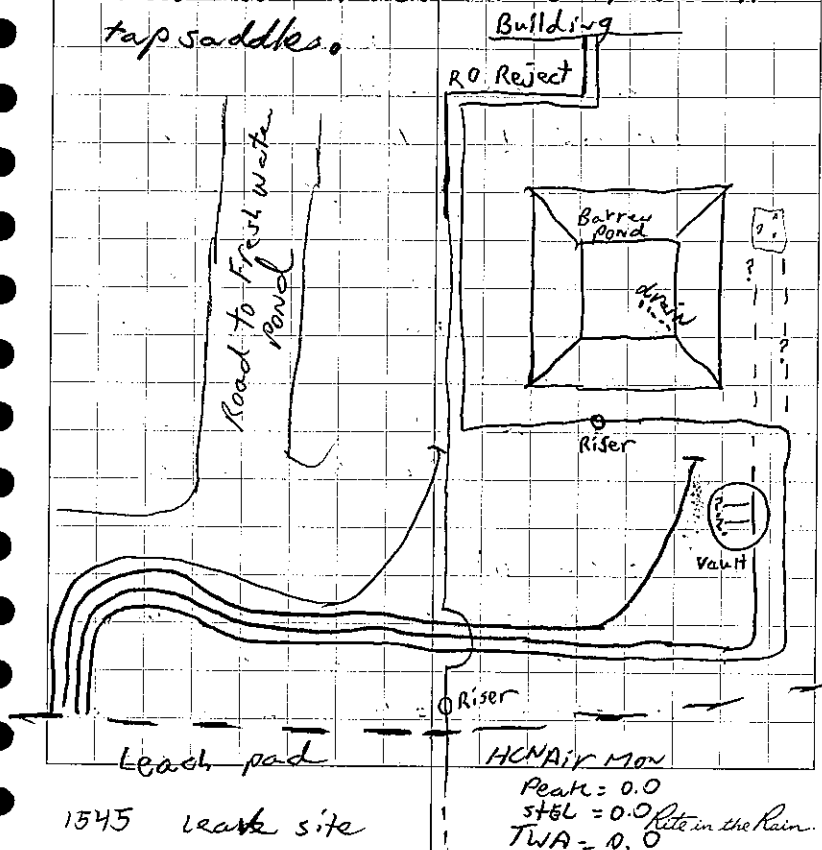 tap saddles.
Building
RO Reject
Road to Fresh water
Pond
Barren
Pond
drain
? ?
?
?
Riser
Vault
Riser
Leach pad
HCN Air Mon
Peak = 0.0
StEL = 0.0
Rite in the Rain.
1545 Leave site
TWA = 0.0